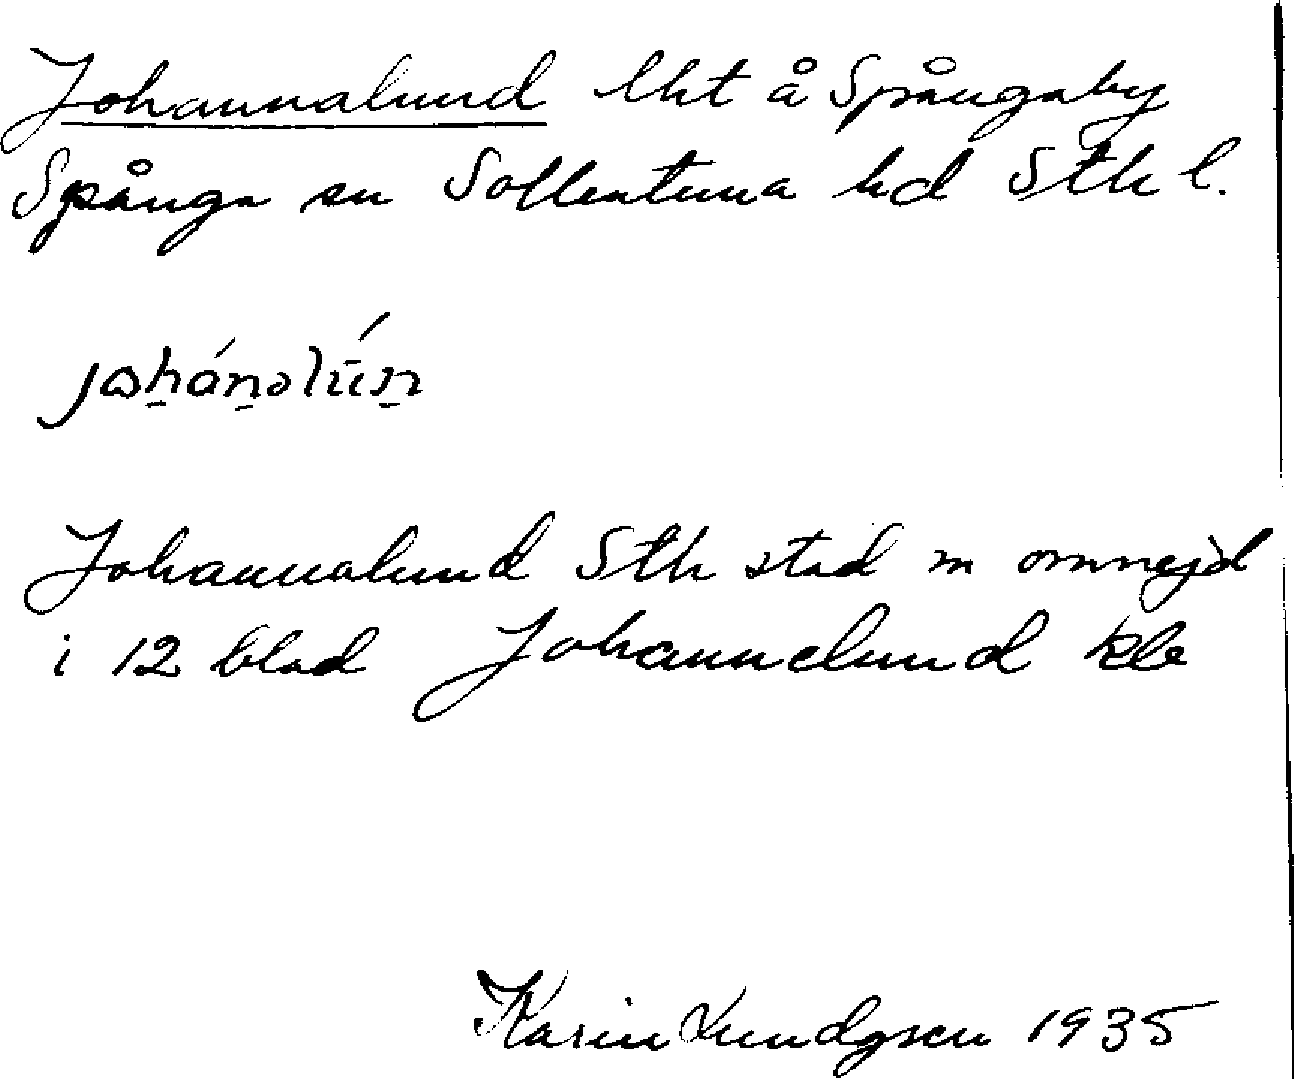 Johannalund lht å Spångaby
Spånga sn Sollentuna hd Sth l.
Johannalund Sth stad m omnejd
i 12 blad Johannelund kle
Karin Lundgren 1935